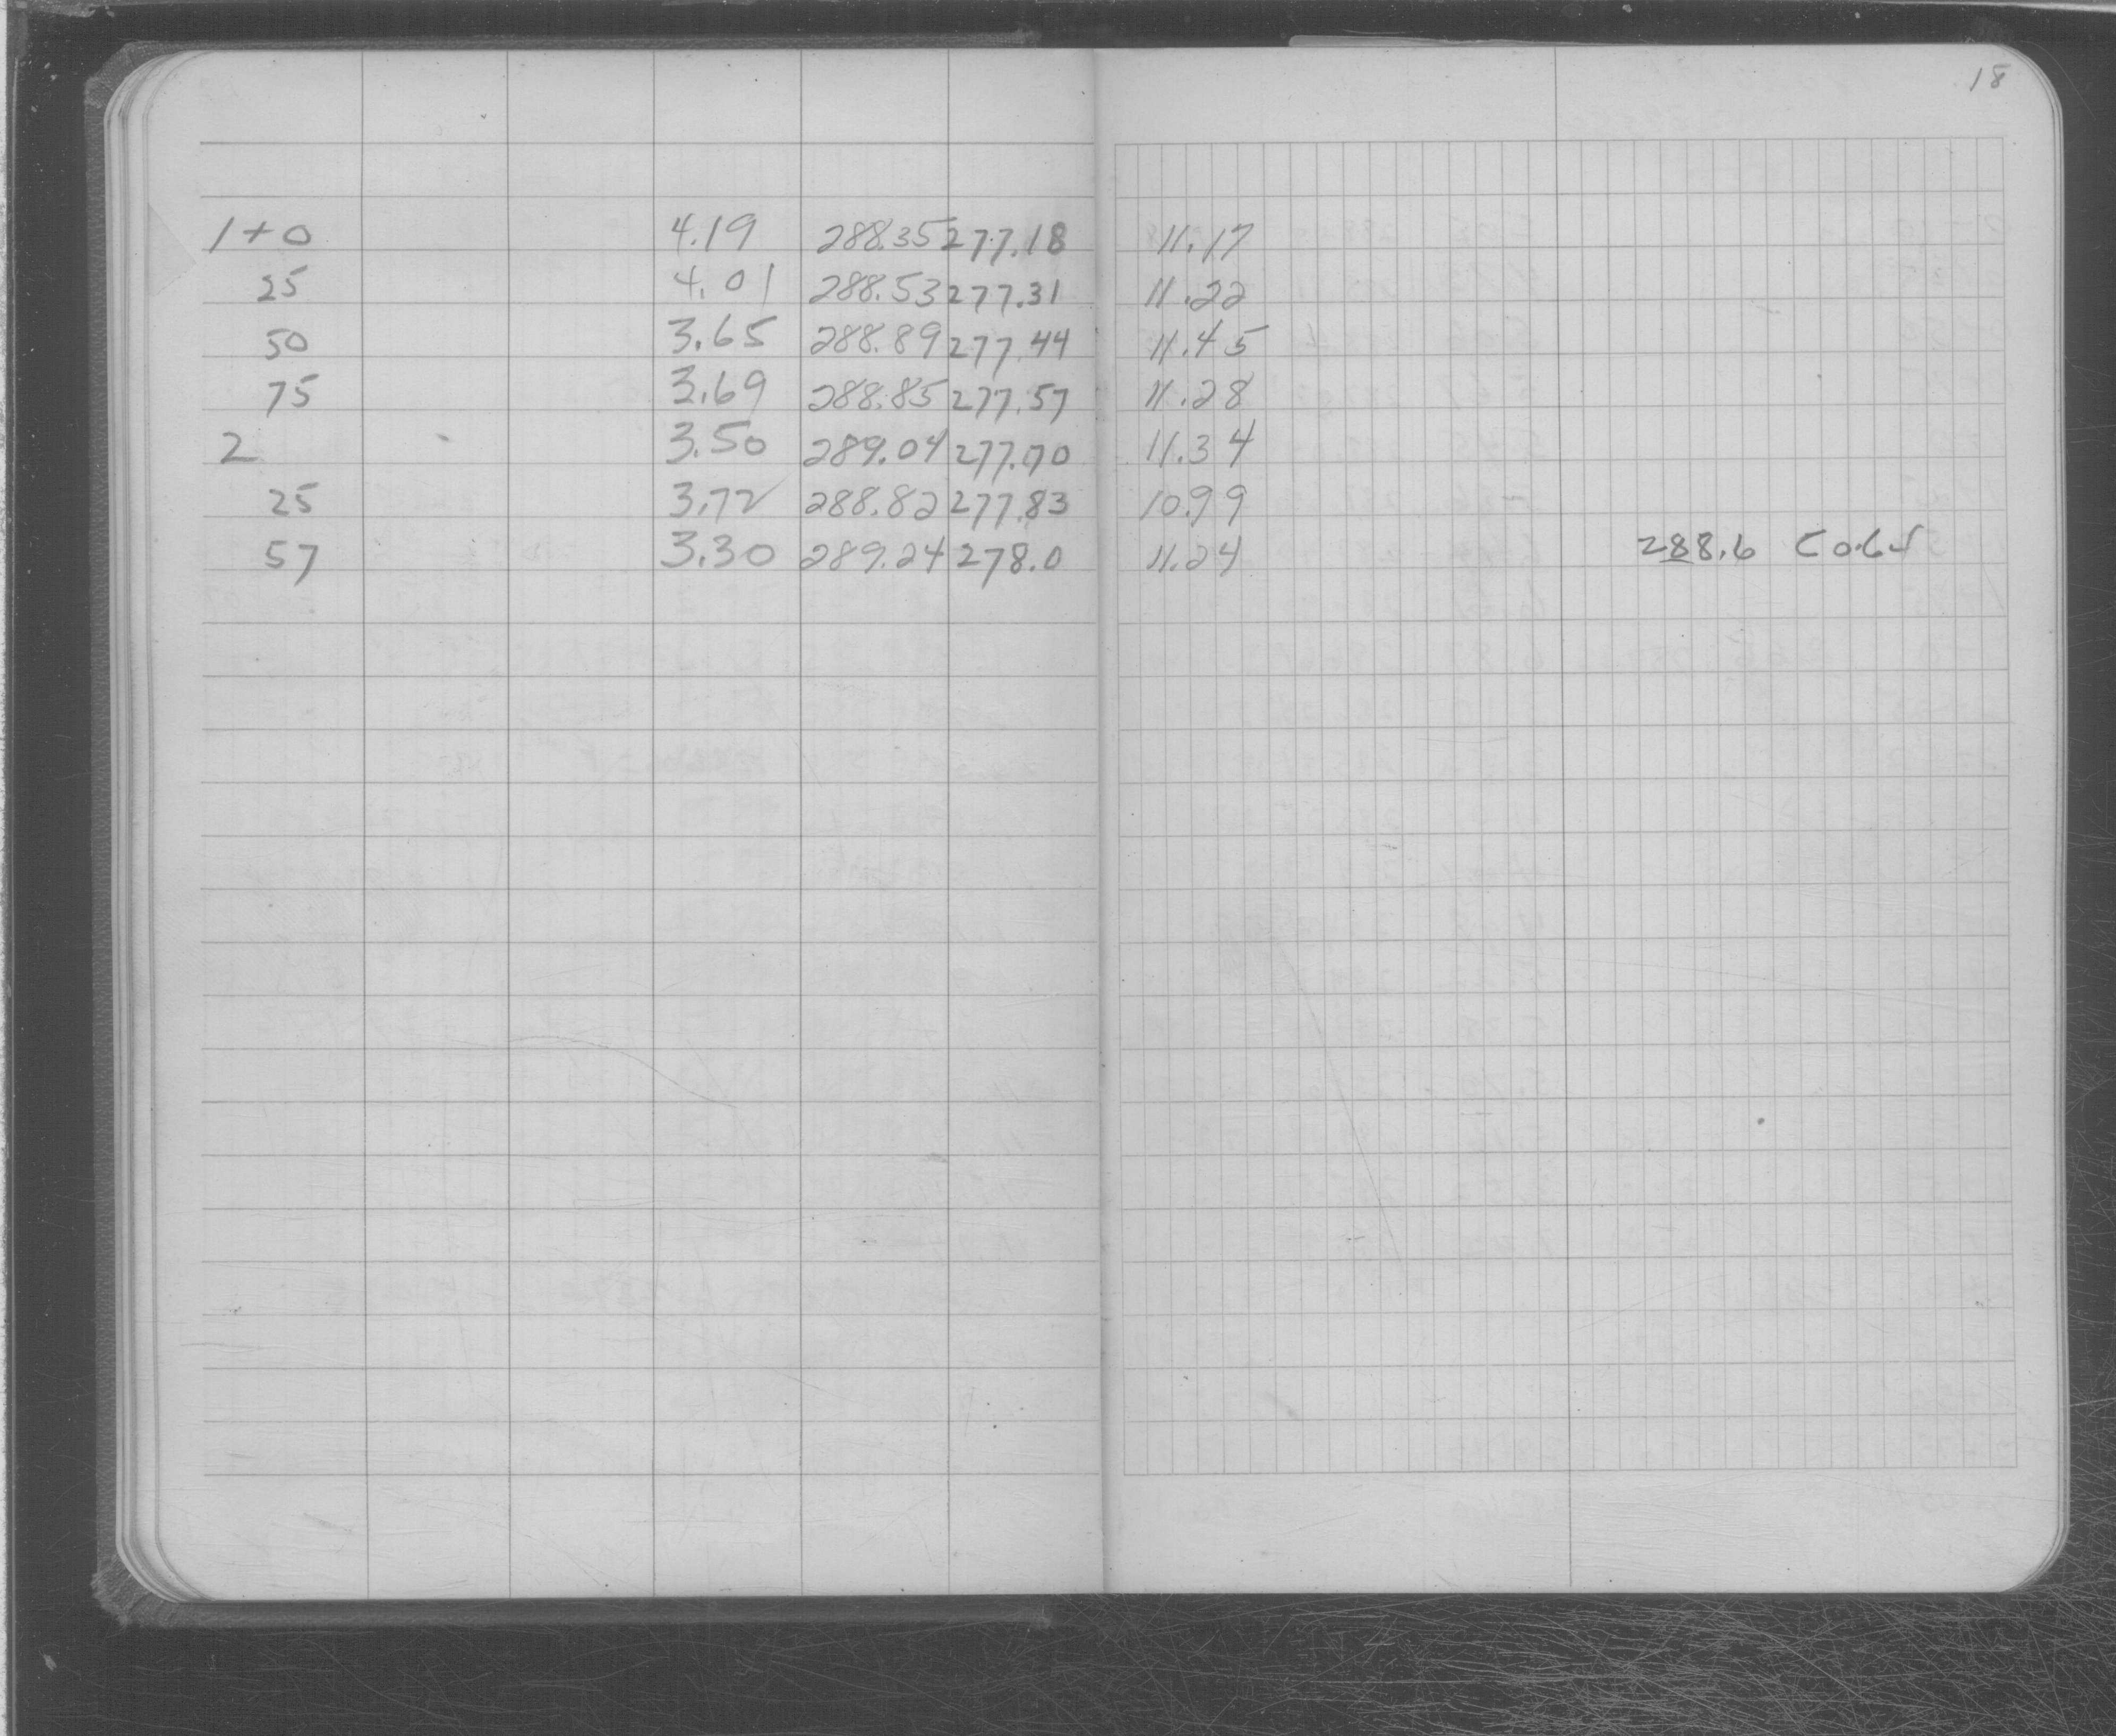 18
1+0 4.19 288.35 277.18 11.17
25 4.01 288.53 277.31 11.22
50 3.65 288.89 277.44 11.45
75 3.69 288.85 277.57 11.28
2 3.50 289.04 277.70 11.34
25 3.72 288.82 277.83 10.99
57 3.30 289.24 278.0 11.24 288.6